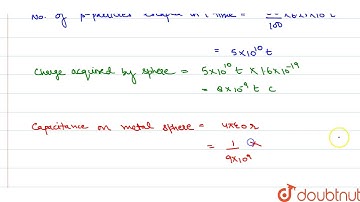 No. of β-particles
100
= 5×10^10 t
Charge acquired by sphere = 5×10^10 t × 1.6×10^-19
= 8×10^-9 t C
Capacitance on metal sphere = 4πε0 r
= 1/9×10^9
doubtnut